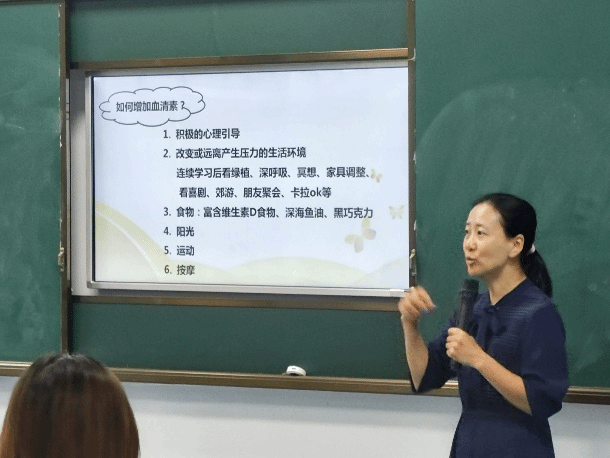 如何增加血清素？
1. 积极的心理引导
2. 改变或远离产生压力的生活环境
连续学习后看绿植、深呼吸、冥想、家具调整、
看喜剧、郊游、朋友聚会、卡拉ok等
3. 食物：富含维生素D食物、深海鱼油、黑巧克力
4. 阳光
5. 运动
6. 按摩